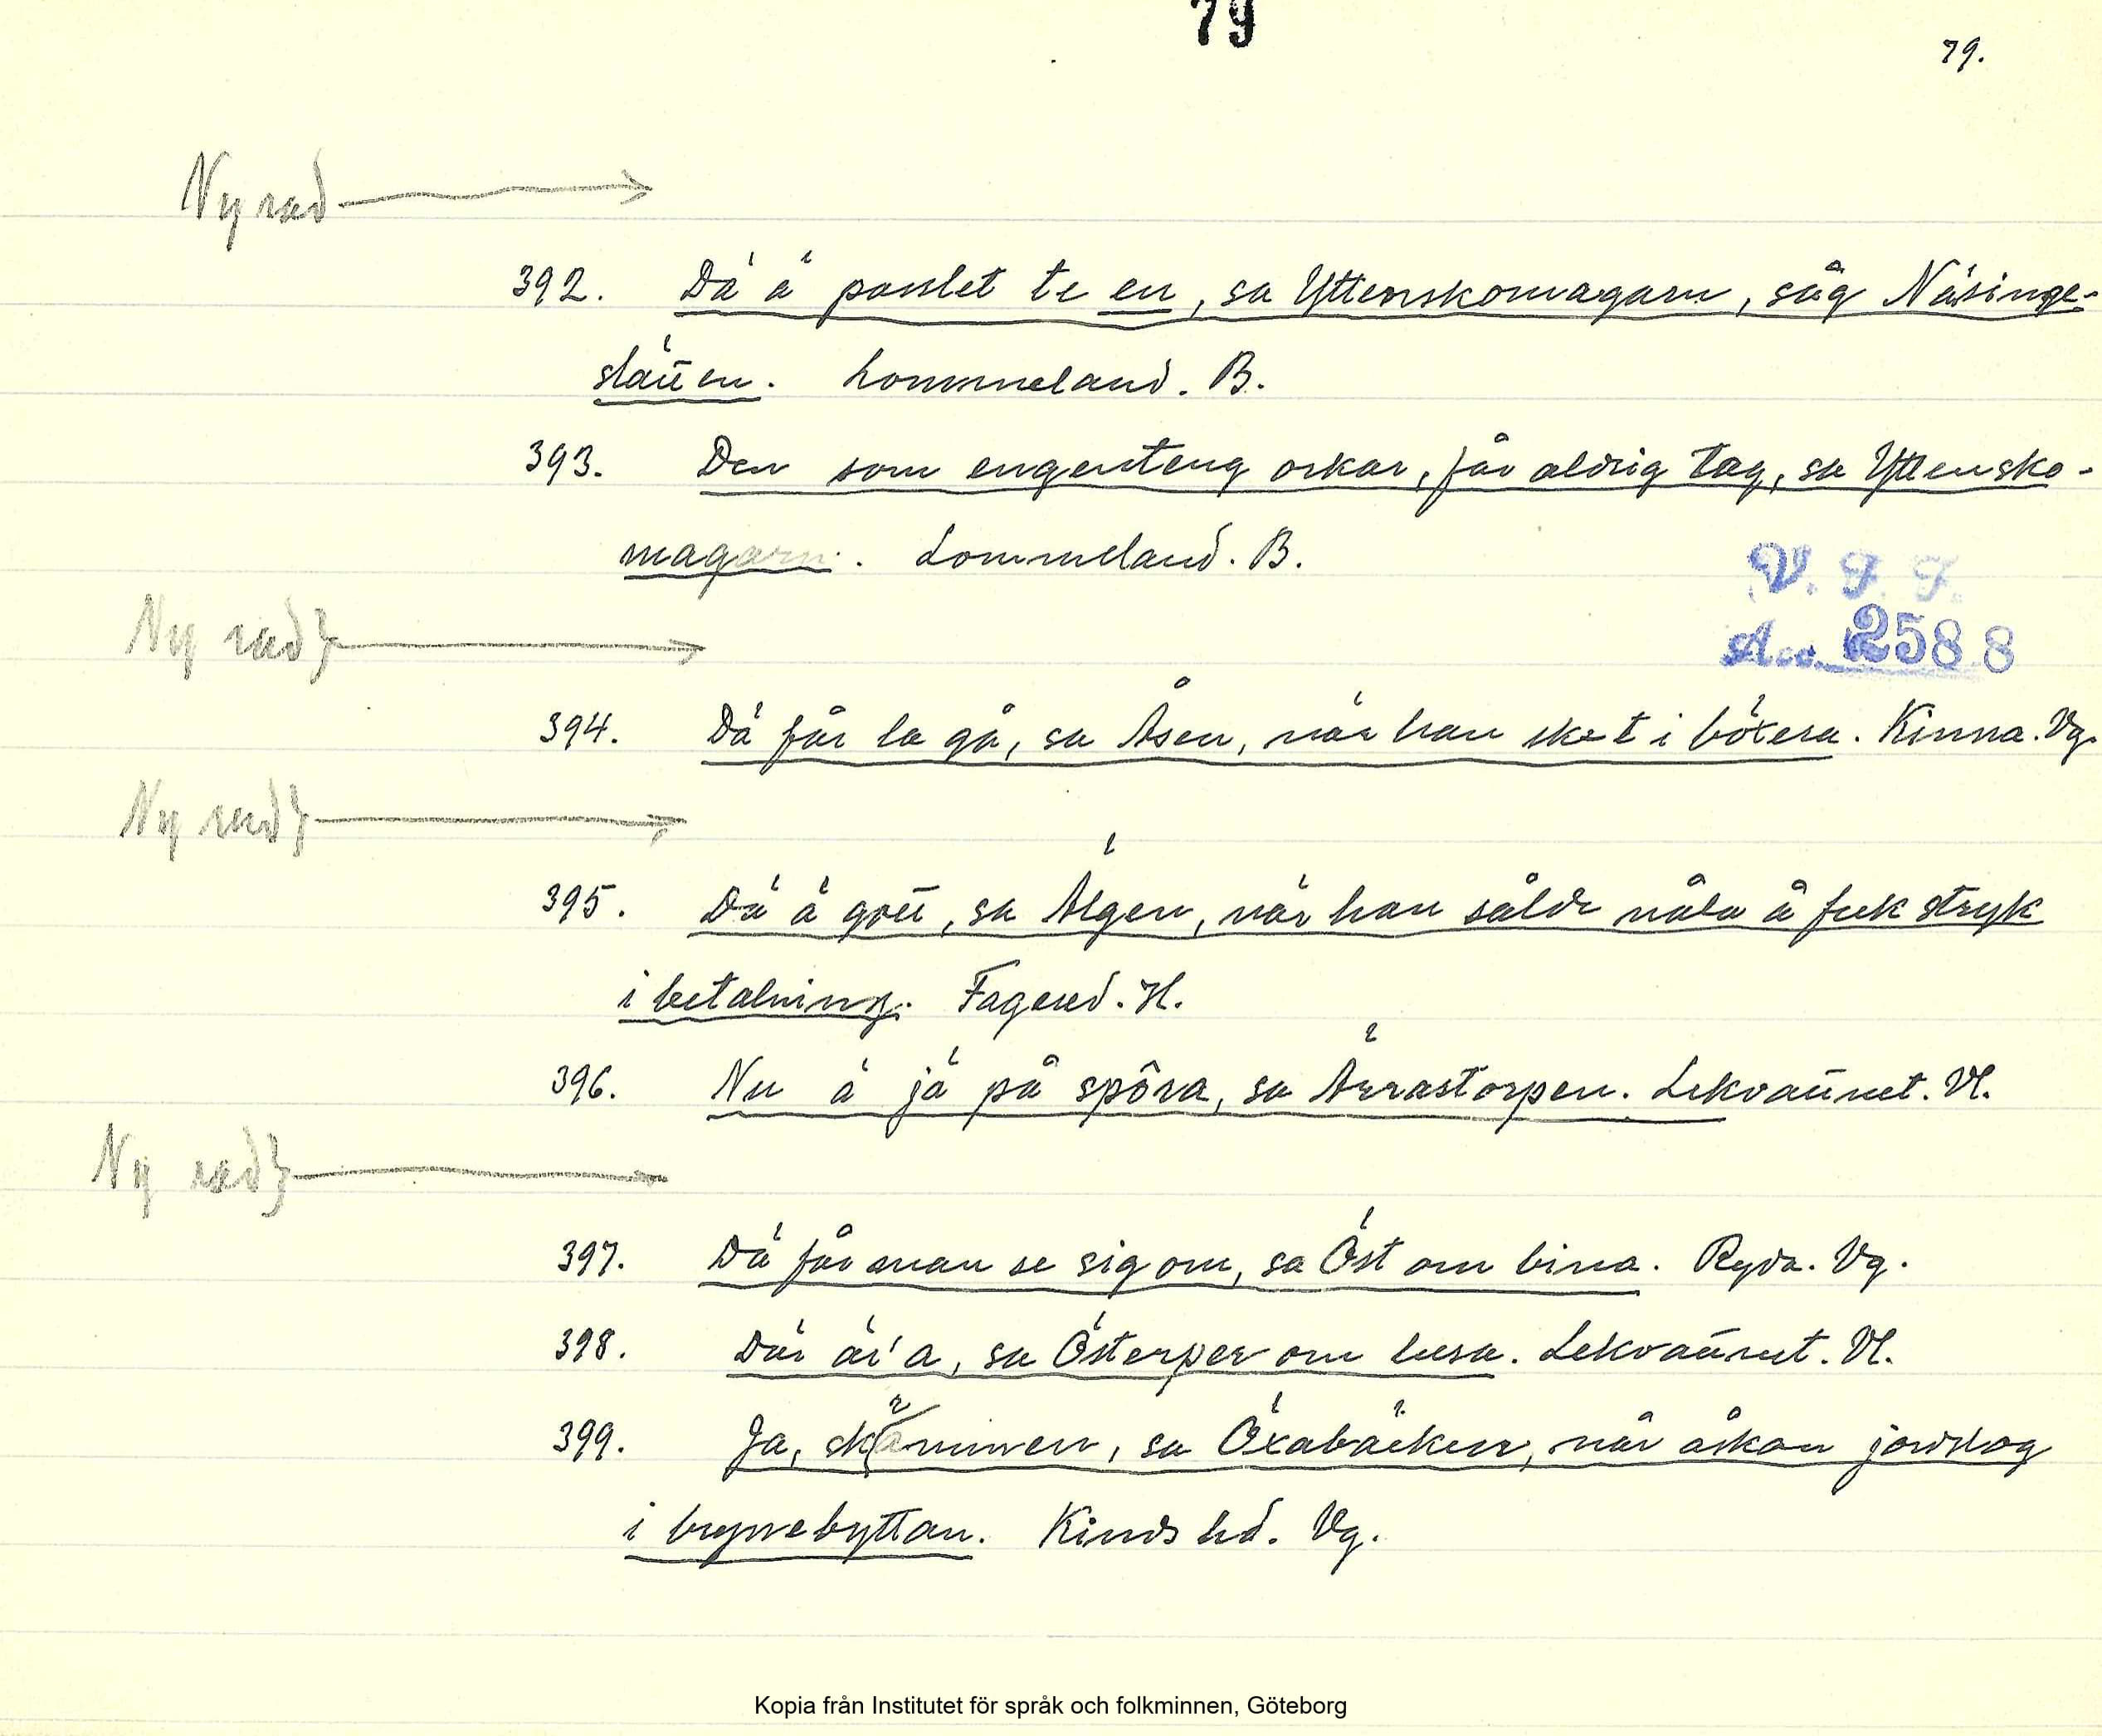 79
79.
Ny rad
392. Dä ä passlet te en, sa Yttenskomagarn, såg Näsinge-
släu̅en. Lommeland. B.
393. Den som engenteng orkar, får aldrig tag, sa Yttensko-
magarn. Lommeland. B.
V. F. F.
Acc. 2588
Ny rad}
394. Dä får la gå, sa Åsen, när han sket i böxera. Kinna. Vg.
Ny rad}
395. Dä ä gott, sa Älgen, när han sålde nåla å fick stryk
i betalning. Fagered. H.
396. Nu ä jä på spôra, sa Ärrastorpen. Lekvattnet. Vl.
Ny rad}
397. Dä får man se sig om, sa Öst om bina. Ryda. Vg.
398. Där är'a, sa Österper om lusa. Lekvattnet. Vl.
399. Ja, skämmen, sa Öxabäcken, när åskan jordslog
i brynebyttan. Kinds hd. Vg.
Kopia från Institutet för språk och folkminnen, Göteborg